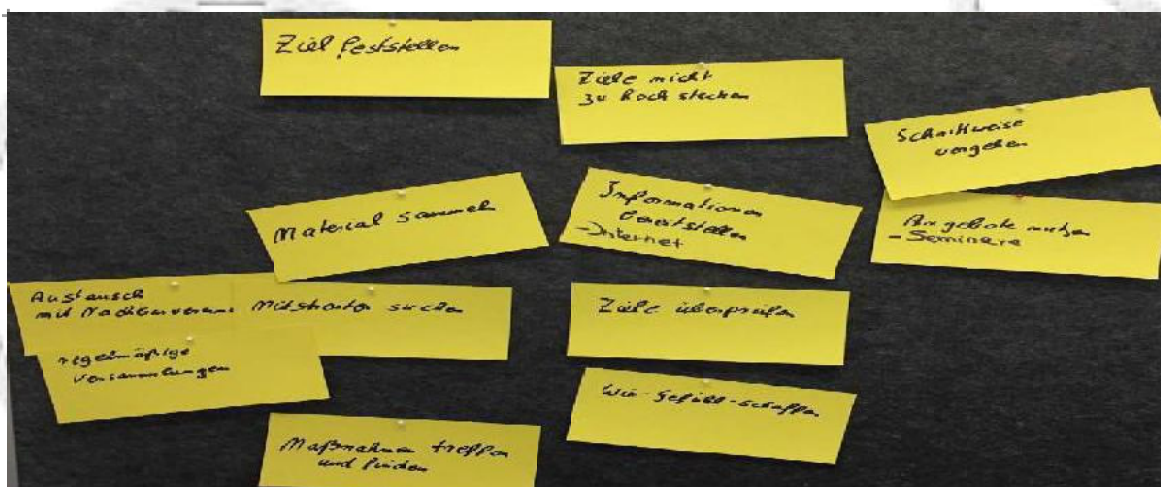 Ziel feststellen
Ziele nicht
zu hoch stecken
Schrittweise
vorgehen
Material sammeln
Informationen
bereitstellen
- Internet
Angebote nutzen
- Seminare
Austausch
mit Nachbarverein
Mitstreiter suchen
Ziele überprüfen
regelmäßige
Versammlungen
Wir-Gefühl-schaffen
Maßnahmen treffen
und finden